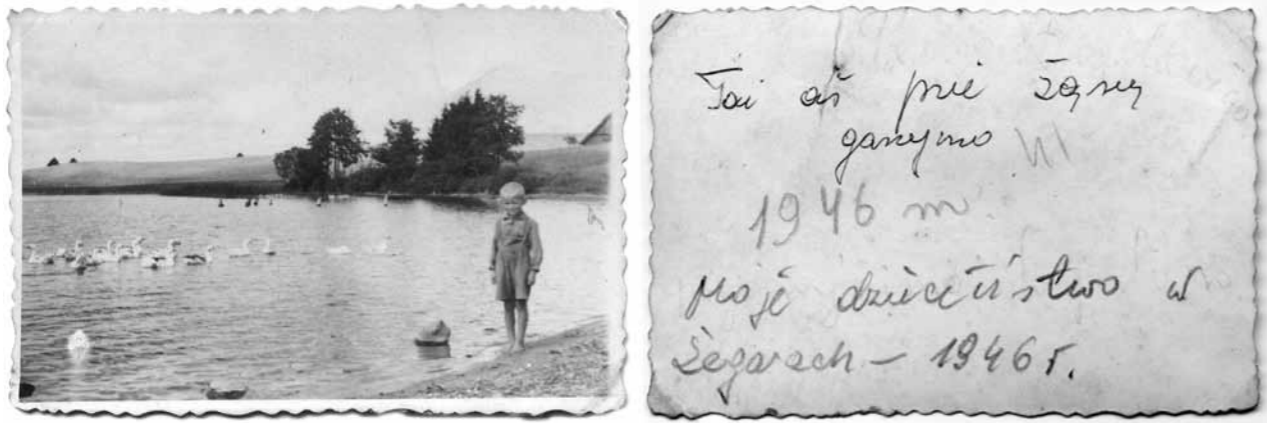 Tai aš prie žąsų
ganymo
1946 m.
Moje dzieciństwo w
Żegarach – 1946 r.